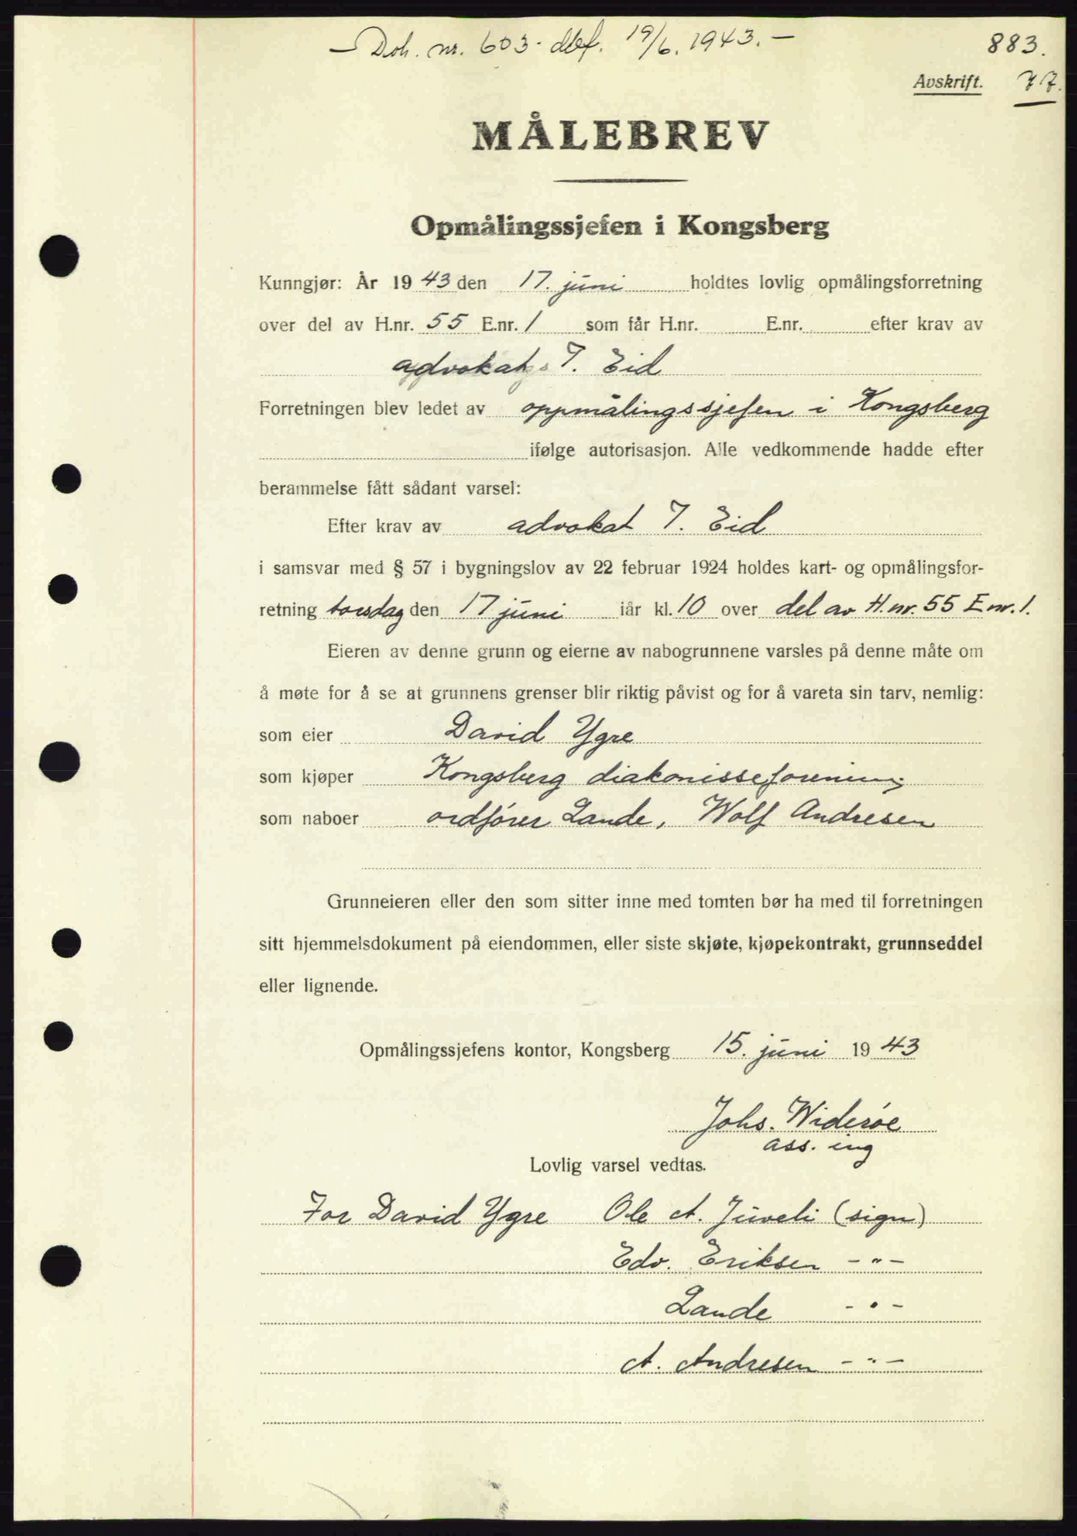 - Dok. nr. 603. dbf. 19/6. 1943. -
883.
Avskrift. 77.
MÅLEBREV
Opmålingssjefen i Kongsberg
Kunngjør: År 1943 den 17. juni holdtes lovlig opmålingsforretning
over del av H.nr. 55 E.nr. 1 som får H.nr. E.nr. efter krav av
advokat J. Eid
Forretningen blev ledet av oppmålingssjefen i Kongsberg
ifølge autorisasjon. Alle vedkommende hadde efter
berammelse fått sådant varsel:
Efter krav av advokat J. Eid
i samsvar med § 57 i bygningslov av 22 februar 1924 holdes kart- og opmålingsfor-
retning torsdag den 17 juni iår kl. 10 over del av H.nr. 55 E nr. 1.
Eieren av denne grunn og eierne av nabogrunnene varsles på denne måte om
å møte for å se at grunnens grenser blir riktig påvist og for å vareta sin tarv, nemlig:
som eier David Ygre
som kjøper Kongsberg diakonisseforening
som naboer ordfører Lande, Wolf Andresen
Grunneieren eller den som sitter inne med tomten bør ha med til forretningen
sitt hjemmelsdokument på eiendommen, eller siste skjøte, kjøpekontrakt, grunnseddel
eller lignende.
Opmålingssjefens kontor, Kongsberg 15. juni 1943
Johs. Widerøe
ass. ing
Lovlig varsel vedtas.
For David Ygre Ole A. Juveli (sign)
Edv. Eriksen -"-
Lande -"-
A. Andresen -"-